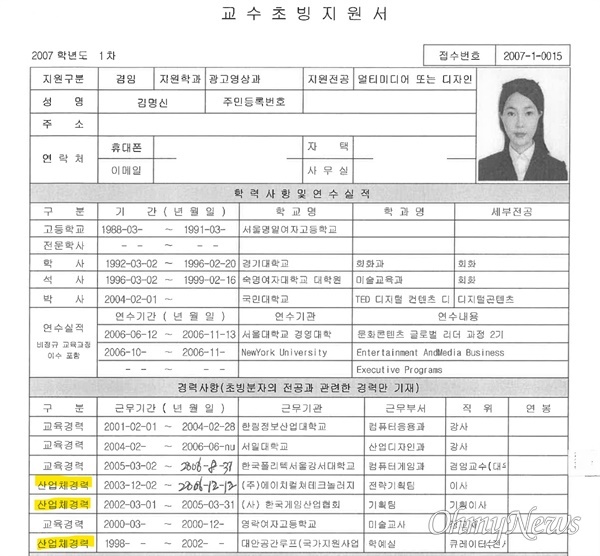 교수초빙지원서
2007 학년도 1차 접수번호 2007-1-0015
지원구분 겸임 지원학과 광고영상과 지원전공 멀티미디어 또는 디자인
성 명 김명신 주민등록번호
주 소
연 락 처 휴대폰 자 택
이메일 사 무 실
학력사항및연수실적
구 분 기 간 (년월일) 학 교 명 학 과 명 세부전공
고등학교 1988-03- ~ 1991-03- 서울명일여자고등학교
전문학사 - - ~ - -
학 사 1992-03-02 ~ 1996-02-20 경기대학교 회화과 회화
석 사 1996-03-02 ~ 1999-02-16 숙명여자대학교 대학원 미술교육과 회화
박 사 2004-02-01 ~ 국민대학교 TED 디지털 컨텐츠 디 디지털콘텐츠
연수실적 비정규 교육과정 이수 포함 연수기간 (년월일) 연수기관 연수내용
2006-06-12 ~ 2006-11-13 서울대학교 경영대학 문화콘텐츠 글로벌 리더 과정 2기
2006-10- ~ 2006-11- NewYork University Entertainment AndMedia Business
- - ~ - - Executive Programs
경력사항(초빙분자의 전공과 관련한 경력만 기재)
구 분 근무기간 (년월일) 근무기관 근무부서 직 위 연 봉
교육경력 2001-02-01 ~ 2004-02-28 한림정보산업대학교 컴퓨터응용과 강사
교육경력 2004-02- ~ 2006-06-nu 서일대학교 산업디자인과 강사
교육경력 2005-03-02 ~ 2006-8-31 한국폴리텍서울강서대학교 컴퓨터게임과 겸임교수(대우
산업체경력 2003-12-02 ~ 2006-12-12 (주)에이치컬쳐테크놀러지 전략기획팀 이사
산업체경력 2002-03-01 ~ 2005-03-31 (사) 한국게임산업협회 기획팀 기획이사
교육경력 2000-03- ~ 2000-12- 영락여자고등학교 미술교사
산업체경력 1998- - ~ 2002- - 대안공간루프(국가지원사업 학예실 큐레이터
OhmyNews